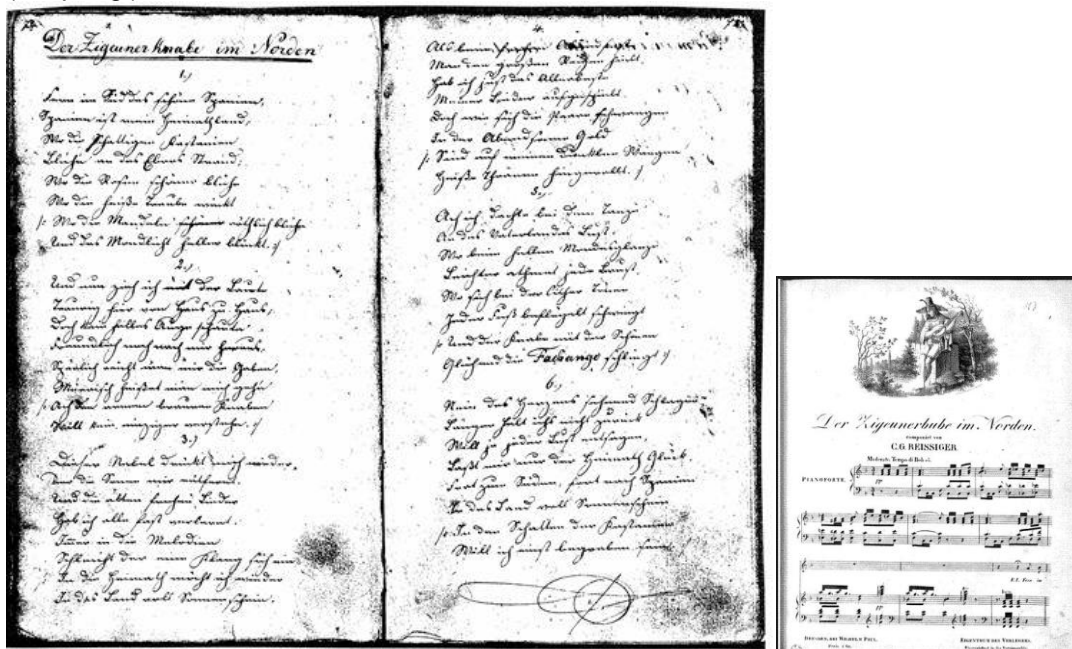 Der Zigeunerknabe im Norden
1.)
Fern im Süd das schöne Spanien,
Spanien ist mein Heimathland,
Wo die schattigen Kastanien
Blühn an des Ebros Strand,
Wo die
Wo die heiße Traube winkt
/: Wo die Mandeln röthlich blühn
Und das Mondlicht heller blinkt. :/
2.)
Und nun zieh ich mit der Laute
Traurig hier von Haus zu Haus,
Doch kein helles Auge schaute
Freundlich noch nach mir heraus.
Spärlich reicht man mir die Gaben,
Mürrisch heißet man mich gehn
/: Ach den armen braunen Knaben
Will kein einziger verstehn. :/
3.)
Dieser Nebel drückt mich nieder,
Der die Sonne mir entfernt.
Und die alten Lieder
Hab ich alle fast verlernt.
Immer in die Melodien
Schleicht der eine Klang sich ein
In die Heimath möcht ich wieder
In das Land voll Sonnenschein.
4.
Als beim
Man den großen Reigen hielt,
Hab ich jüngst das Allerbeste
Meiner Lieder aufgespielt.
Doch wie sich die Paare schwangen
In der Abendsonne Gold
/: Sind auf meine dunklen Wangen
Heiße Thränen hingerollt. :/
5.)
Ach ich dachte bei dem Tanze
An des Vaterlandes Lust,
Wo beim hellen Mondesglanze
Leichter athmet jede Brust,
Wo sich bei der Cither Tönen
Jeder Fuß beflügelt schwingt
/: Und der Knabe mit der Schönen
Glühend die schlingt :/
6.)
Nein des Herzens sehnend Schlagen
Länger halt ichs nicht zurück
Will ja jeder Lust entsagen,
Laßt mir nur der Heimath Glück.
Fort zum Süden, fort nach Spanien
In das Land voll Sonnenschein
/: In den Schatten der Kastanien
Will ich einst begraben sein
Der Zigeunerbube im Norden.
componirt von
C.G. REISSIGER
PIANOFORTE.
DRESDEN, BEI WILHELM PAUL.
EIGENTHUM DES VERLEGERS.